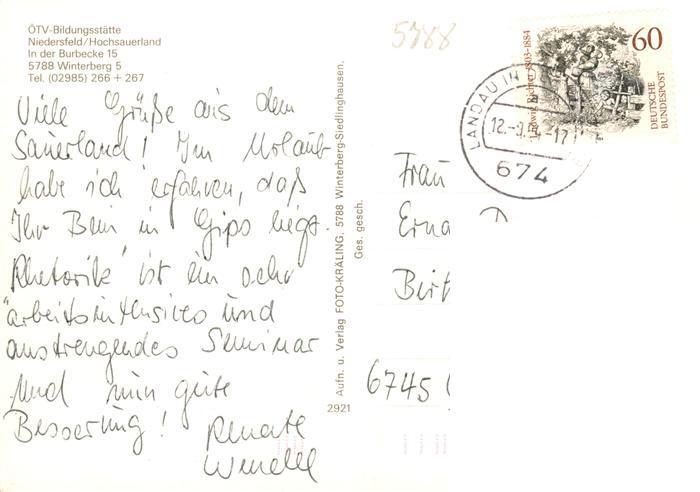 ÖTV-Bildungsstätte
Niedersfeld/Hochsauerland
In der Burbecke 15
5788 Winterberg 5
Tel. (02985) 266 + 267
Viele Grüße aus dem
Sauerland! Im Urlaub
habe ich erfahren, daß
Ihr Bein in Gips liegt.
"Rhetorik" ist ein sehr
arbeitsintensives und
anstrengendes Seminar
Und nun gute
Besserung! Renate
Aufn. u. Verlag FOTO-KRÄLING, 5788 Winterberg-Siedlinghausen,
Ges. gesch.
2921
5788
Ludwig Richter 1803-1884
60
DEUTSCHE
BUNDESPOST
LANDAU IN
12.-9.
-17
674
Frau
Erna
Birk
6745